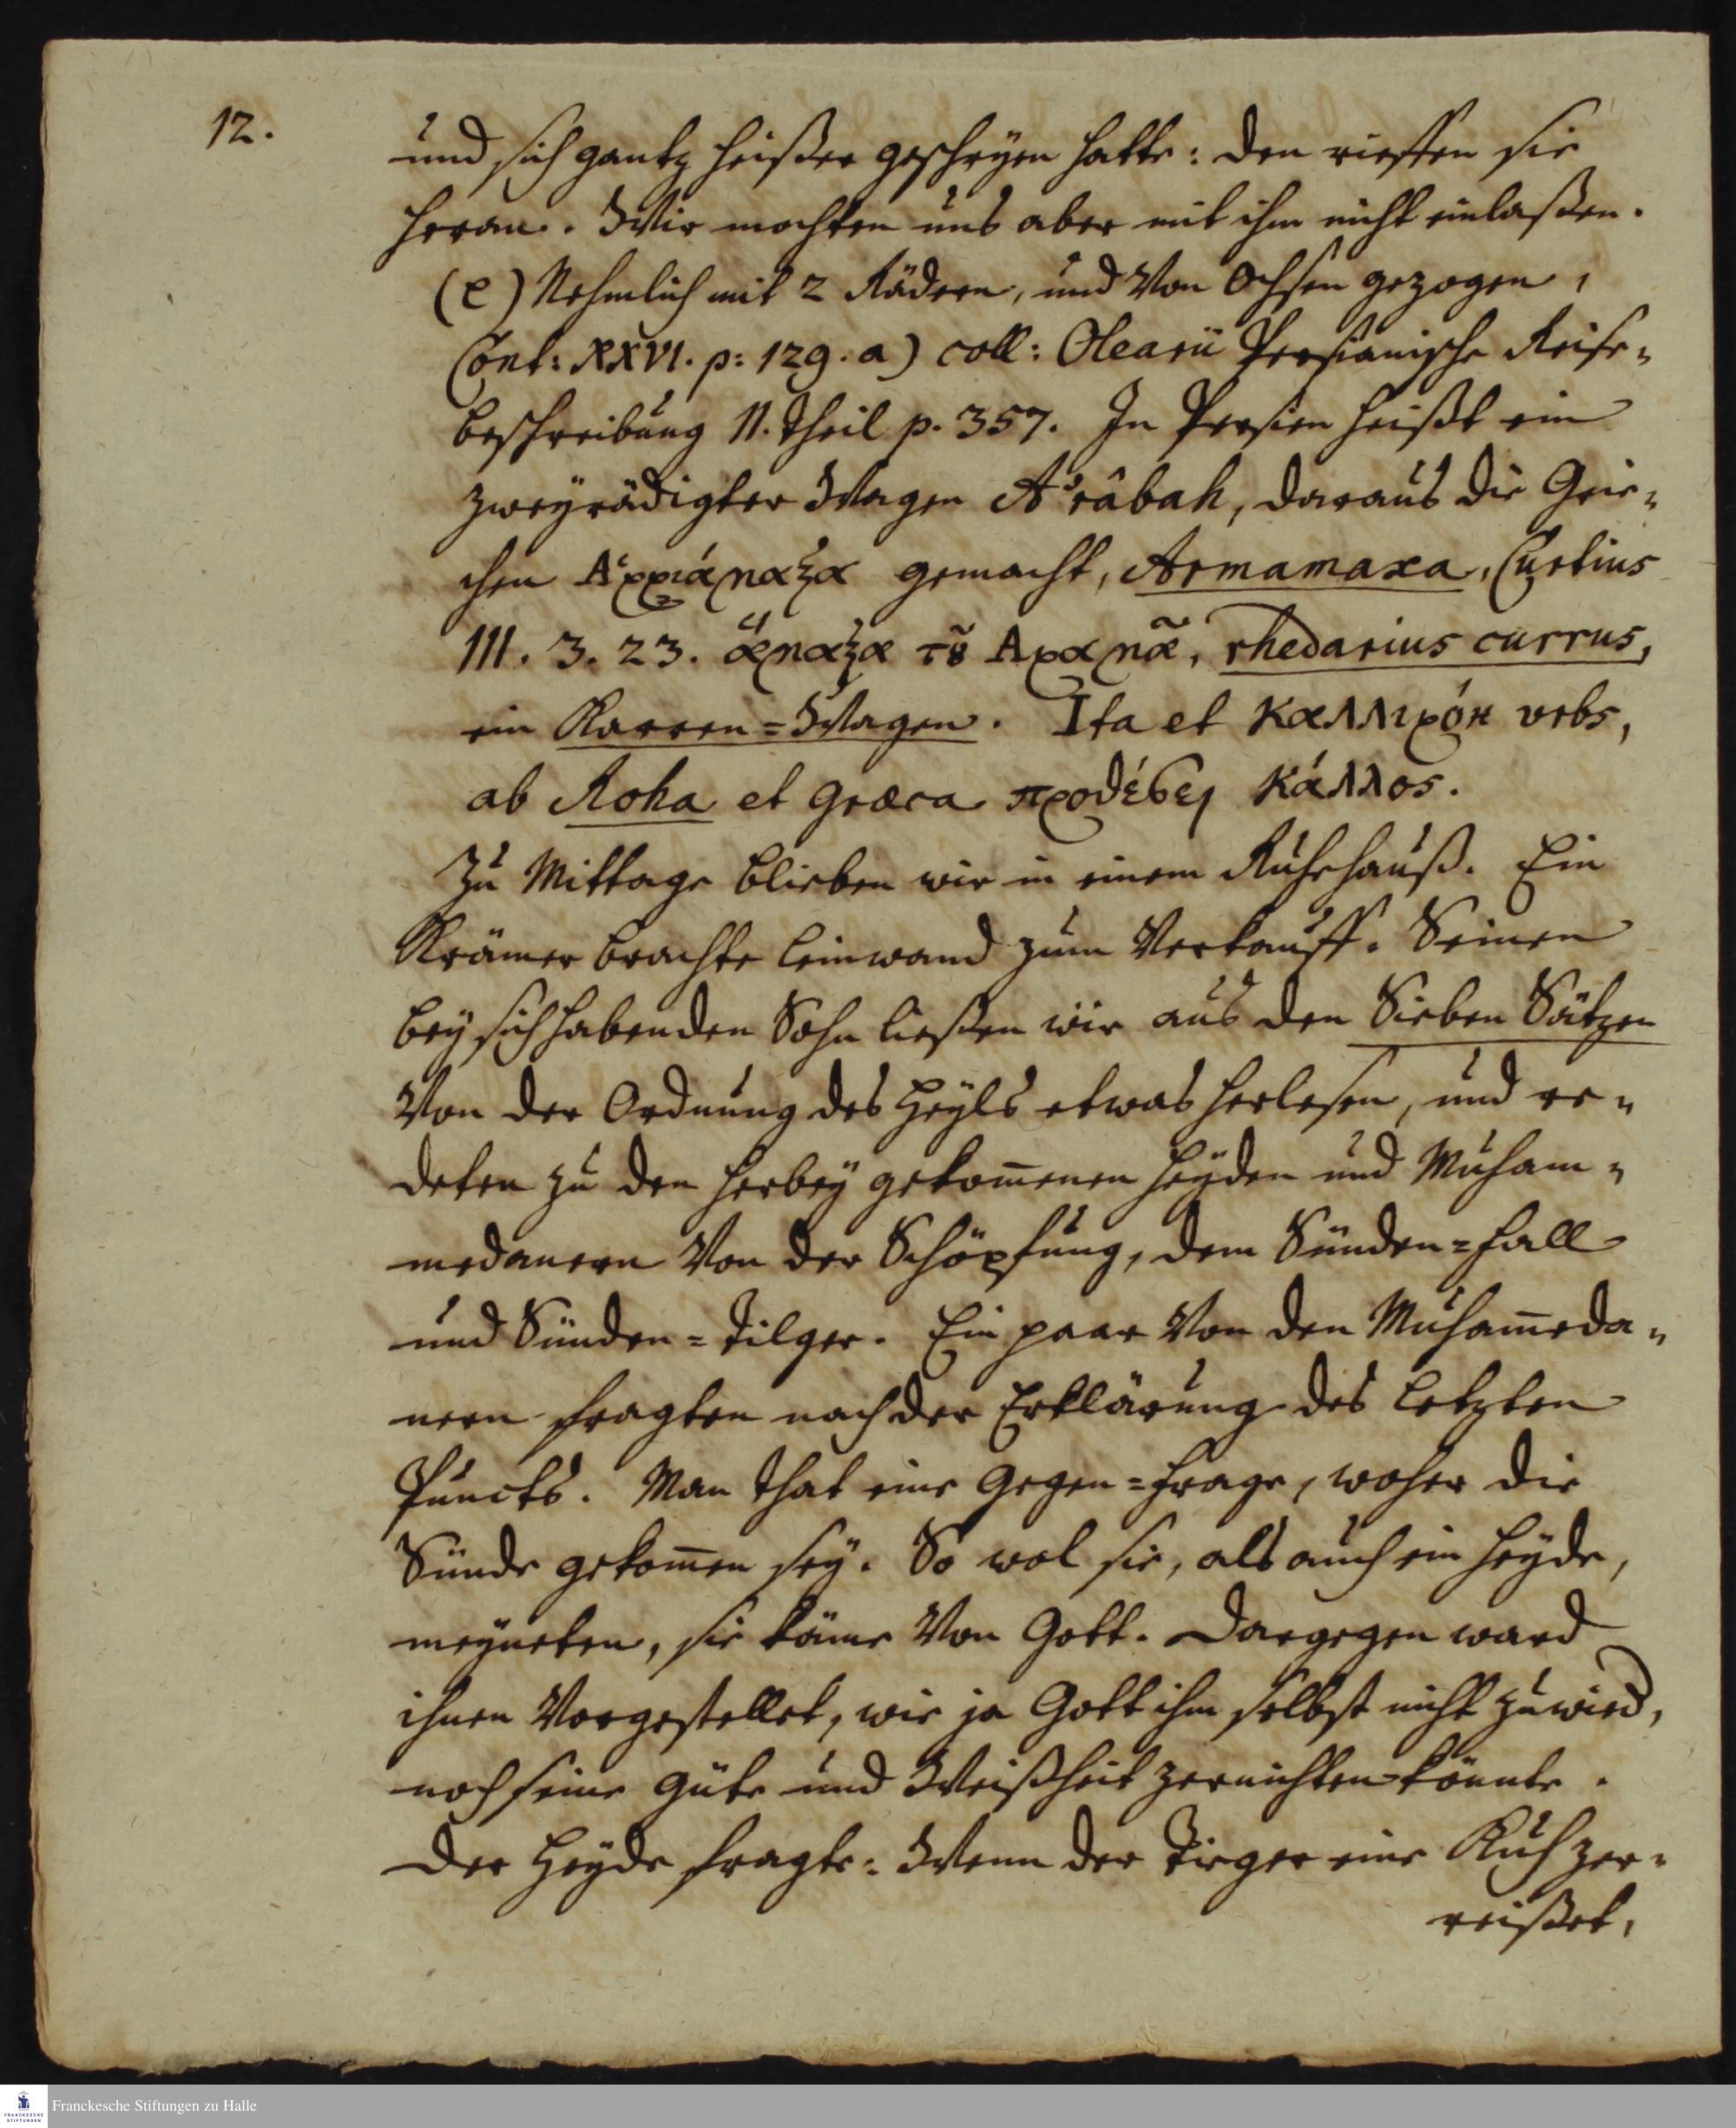 12.
und sich gantz heißer geschryen hatte: den rieffen sie
heran. Wir mochten uns aber mit ihm nicht einlaßen.
(e) Nehmlich mit 2 Rädern, und von Ochsen gezogen,
Cont: XXVI. p: 129. a) coll: Olearii Persianische Reise-
beschreibung II. Theil p. 357. In Persien heißt ein
zweyrädigter Wagen A'râbah, daraus die Grie-
chen gemacht, Armamaxa, Curtius
III. 3. 23. rhedarius currus,
ein Karren=Wagen. Ita et Καλλιρόη vrbs,
ab Roha et Græca προθέσει Κάλλος.
Zu Mittage blieben wir in einem Ruhehauß. Ein
Krämer brachte Leinwand zum Verkauff. Seinen
bey sich habenden Sohn ließen wir aus den Sieben Sätzen
von der Ordnung des Heyls etwas herlesen, und re-
deten zu den herbey gekom̅enen Heyden und Muham-
medanern von der Schöpfung, dem Sünden=Fall
und Sünden=Tilger. Ein paar von den Muham̅eda-
nern fragten nach der Erklärung des letzten
Puncts. Man that eine Gegen=Frage, woher die
Sünde gekom̅en sey. So wol sie, als auch ein Heyde,
meyneten, sie käme von Gott. Dargegen ward
ihnen vorgestellet, wie ja Gott ihm selbst nicht zuwied,
noch seine Güte und Weißheit zernichten könnte.
Der Heyde fragte: Wenn der Tieger eine Kuh zer-
reißet,
Franckesche Stiftungen zu Halle